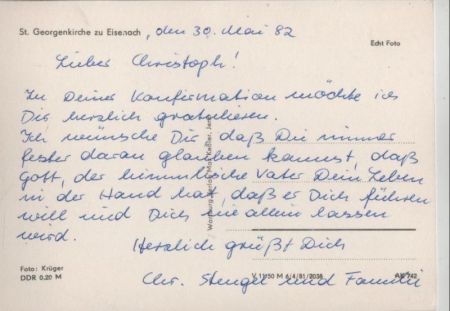 St. Georgenkirche zu Eisenach, den 30. Mai 82
Echt Foto
Lieber Christoph!
Zu Deiner Konfirmation möchte ich
Dir herzlich gratulieren.
Ich wünsche Dir, daß Du immer
fester daran glauben kannst, daß
Gott, der himmlische Vater Dein Leben
in der Hand hat, daß er Dich führen
will und Dich nie allein lassen
wird.
Herzlich grüßt Dich
Chr. Stengel und Familie
Foto: Krüger
DDR 0.20 M
V 11 50 M 6/4/81/2038
AK 742